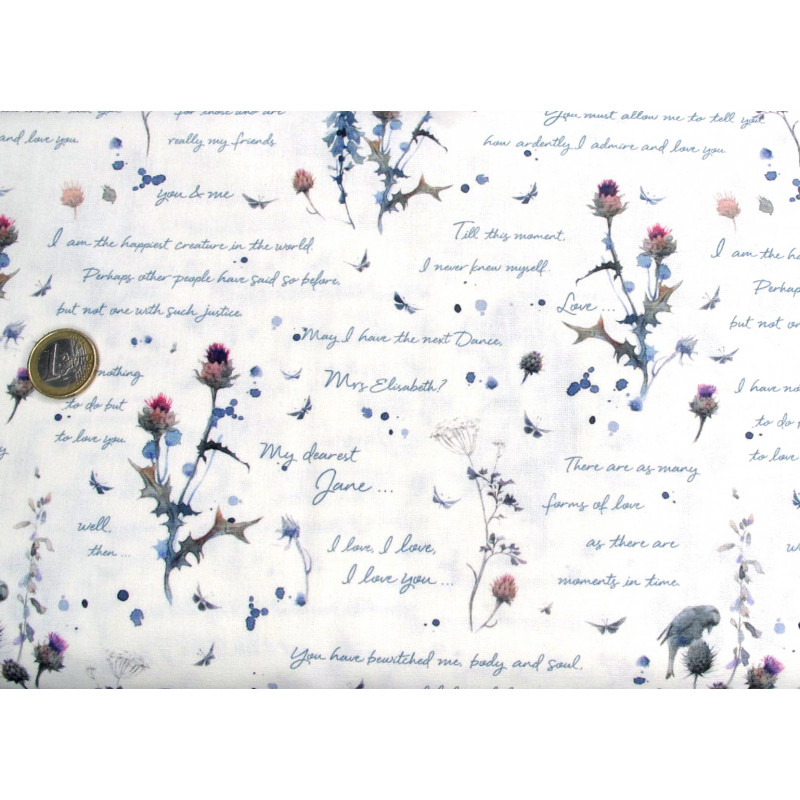 for those who are
really my friends
and love you
You must allow me to tell you
how ardently I admire and love you
you & me
I am the happiest creature in the world.
Perhaps other people have said so before,
but not one with such justice.
Till this moment,
I never knew myself.
Love ...
I am the ha
Perhap
but not on
May I have the next Dance,
Mrs Elisabeth?
1
nothing
to do but
to love you
I have no
to do
to love
My dearest
Jane ...
There are as many
forms of love
as there are
moments in time.
well,
then ...
I love, I love,
I love you ...
You have bewitched me, body and soul,